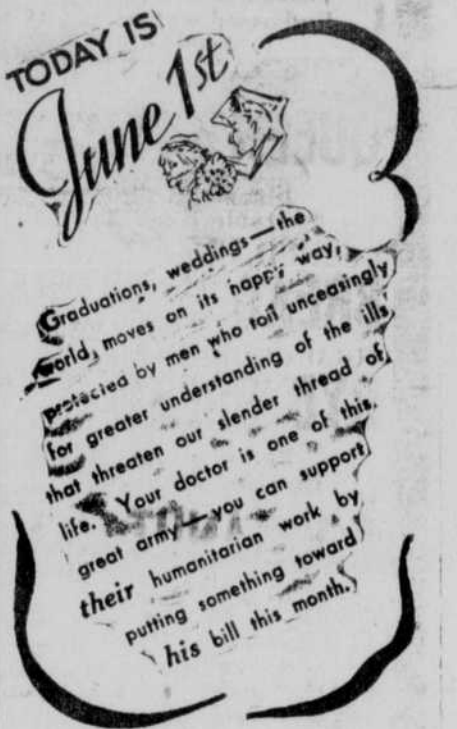 TODAY IS
June 1st
Graduations, weddings—the
world, moves on its happy way,
protected by men who toil unceasingly
for greater understanding of the ills
that threaten our slender thread of
life. Your doctor is one of this
great army—you can support
their humanitarian work by
putting something toward
his bill this month.